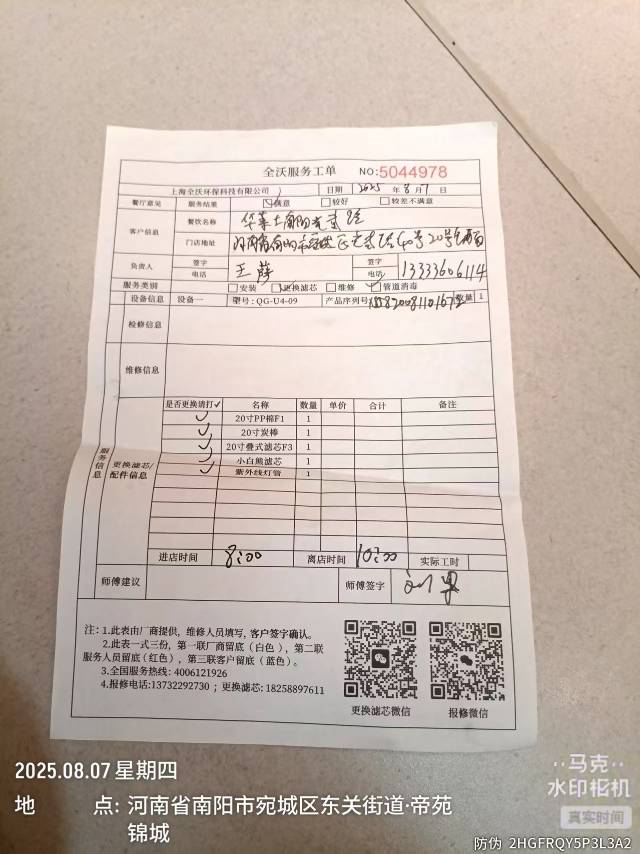 全沃服务工单 NO:5044978
上海全沃环保科技有限公司 日期 2025 年 8 月 7 日
餐厅意见 服务结果 满意 较好 较差不满意
客户信息 餐饮名称 华莱士南阳
门店地址 河南省南阳
负责人 签字 王 签字
电话 电话 13333606114
服务类别 安装 更换滤芯 维修 管道消毒
设备信息 设备一 型号: QG-U4-09 产品序列号 数量 1
检修信息
维修信息
服务信息
更换滤芯/配件信息
是否更换请打✓ 名称 数量 单价 合计 备注
✓ 20寸PP棉F1 1
✓ 20寸炭棒 1
✓ 20寸叠式滤芯F3 1
✓ 小白熊滤芯 1
✓ 紫外线灯管 1
进店时间 8:00 离店时间 10:00 实际工时
师傅建议 师傅签字
注: 1.此表由厂商提供, 维修人员填写, 客户签字确认。
2.此表一式三份, 第一联厂商留底(白色), 第二联
服务人员留底(红色), 第三联客户留底(蓝色)。
3.全国服务热线: 4006121926
4.报修电话:13732292730 ; 更换滤芯: 18258897611
更换滤芯微信 报修微信
2025.08.07 星期四
地 点: 河南省南阳市宛城区东关街道·帝苑
锦城
马克
水印相机
真实时间
防伪 2HGFRQY5P3L3A2